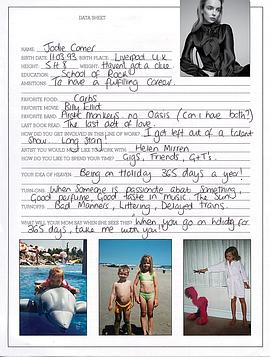 DATA SHEET
NAME: Jodie Comer
BIRTH DATE: 11.03.93 BIRTH PLACE: Liverpool U.K
HEIGHT: 5ft 8 WEIGHT: Haven't got a clue.
EDUCATION: School of Rock
AMBITIONS: To have a fulfilling career.
FAVORITE FOOD: Carbs
FAVORITE MOVIE: Billy Elliot
FAVORITE BAND: Arctic Monkeys. no Oasis (can i have both?)
LAST BOOK READ: The last act of love.
HOW DID YOU GET INVOLVED IN THIS LINE OF WORK? I got left out of a talent
Show. Long Story!
ARTIST YOU WOULD MOST LIKE TO WORK WITH: Helen Mirren
HOW DO YOU LIKE TO SPEND YOUR TIME? Gigs, Friends, G+T's.
YOUR IDEA OF HEAVEN: Being on Holiday 365 days a year!
TURN-ONS: When someone is passionate about something,
Good perfume, Good taste in music. The Sun
TURNOFFS: Bad Manners, Littering, Delayed trains.
WHAT WILL YOUR MOM SAY WHEN SHE SEES THIS? When you go on holiday for
365 days, take me with you!